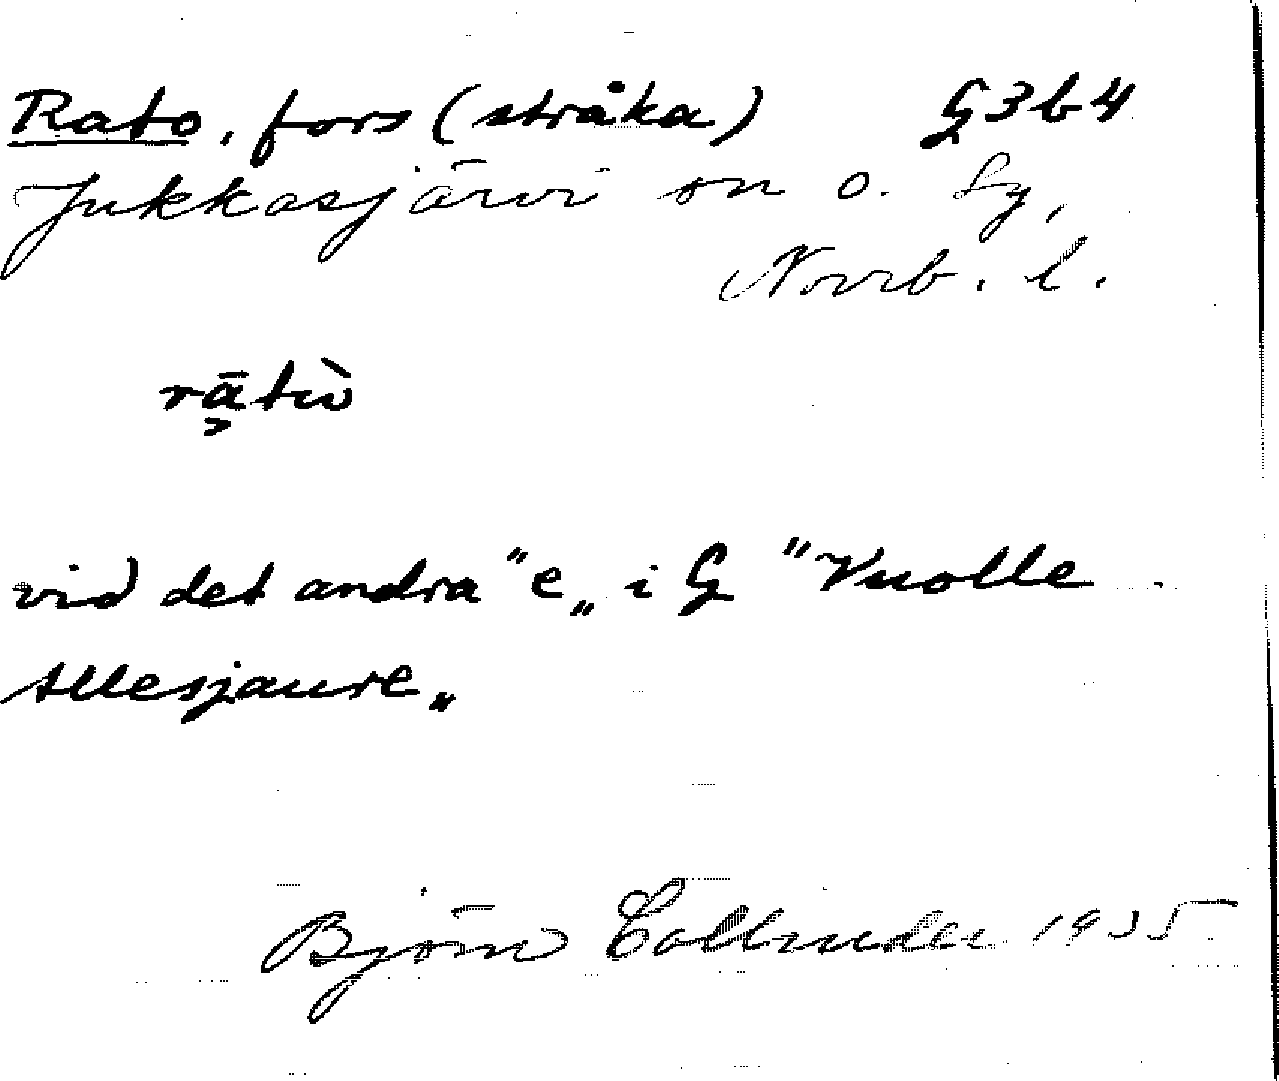 Rato, fors (stråka) G3b4
Jukkasjärvi sn o. Lg,
Norrb. l.
rā̬tꞷ̀
vid det andra "e„ i G "Vuolle
Allesjaure„
Björn Collinder 1935